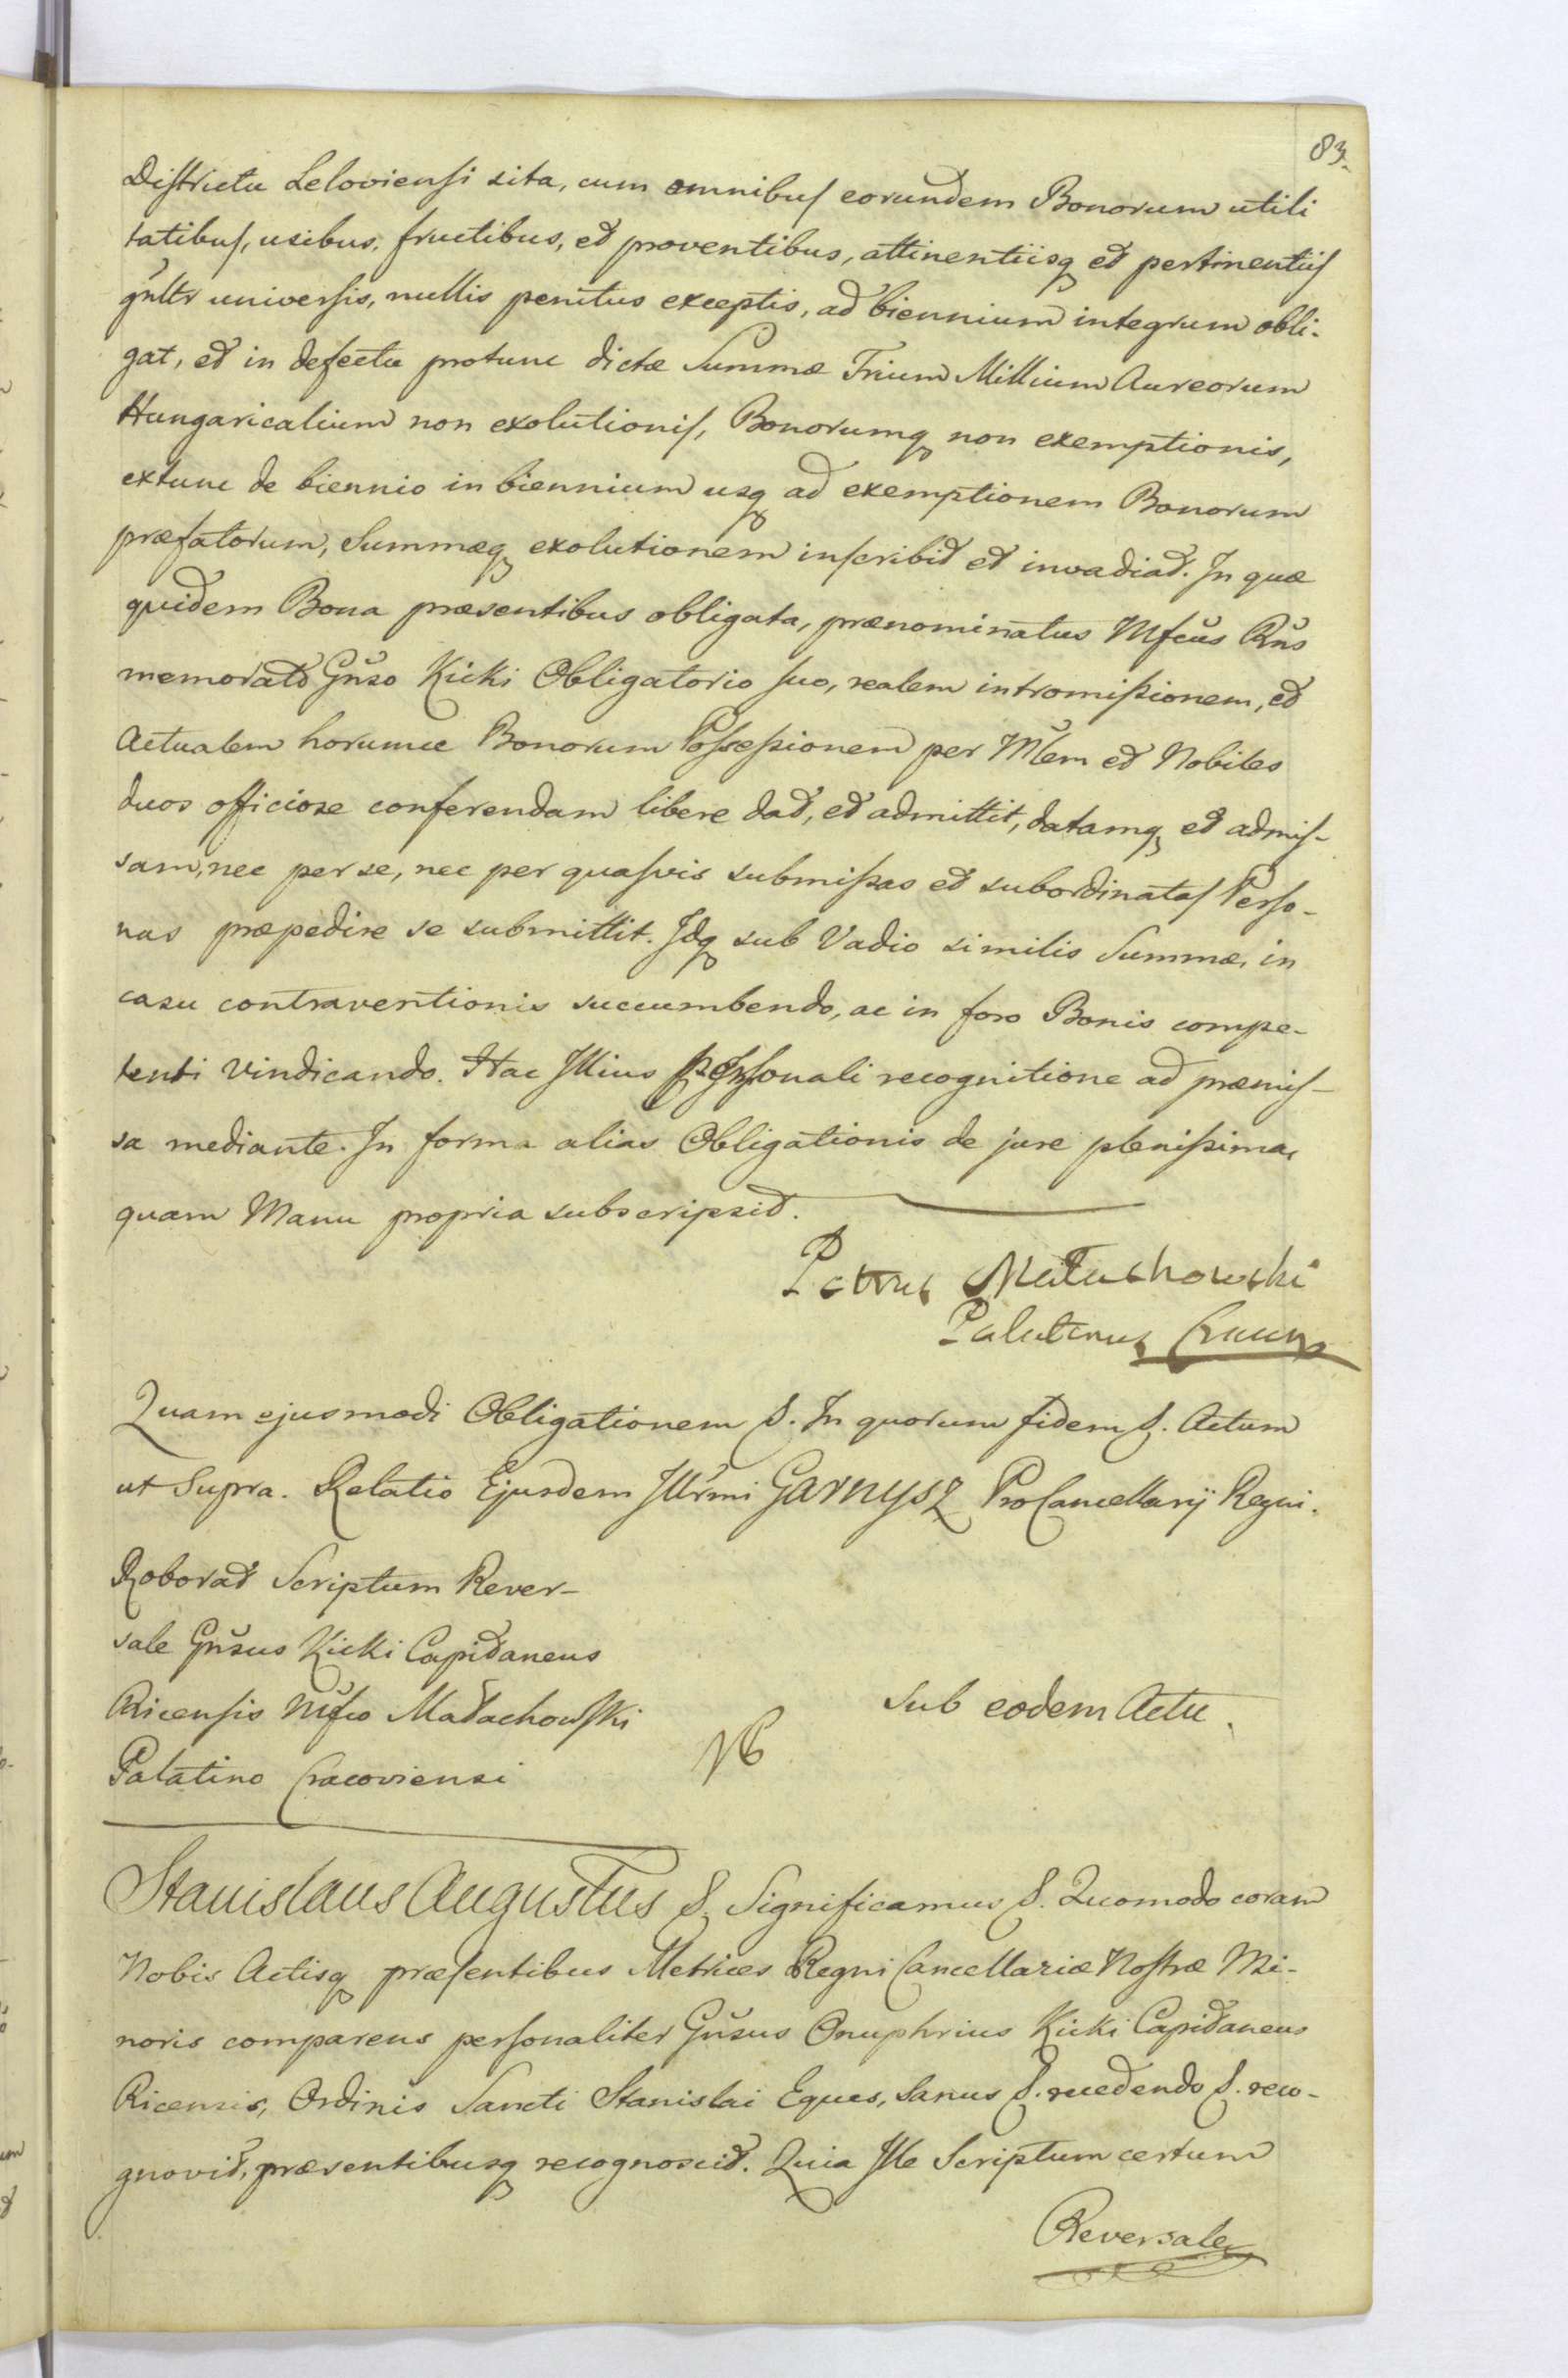 83.
Districtu Leloviensi sita, cum omnibus eorundem Bonorum utili
tatibus, usibus, fructibus, et proventibus, attinentiisq et pertinentiis
gnltr universis, nullis penitus exceptis, ad biennium integrum obli-
gat, et in defectu protunc dictæ Summæ Trium Millium Aureorum
Hungaricalium non exolutionis, Bonorumq non exemptionis,
extunc de biennio in biennium usq ad exemptionem Bonorum
præfatorum, Summæq exolutionem inscribit et invadiat. In quæ
quidem Bona præsentibus obligata, prænominatus Mfcus Rns
memorato Gnso Kicki Obligatorio suo, realem intromissionem, et
Actualem horumce Bonorum Possessionem per Mlem et Nobiles
duos officiose conferendam libere dat, et admittit, datamq et admis-
sam, nec per se, nec per quasvis submissas et subordinatas Perso-
nas præpedire se submittit. Idq sub Vadio similis Summæ, in
casu contraventionis succumbendo, ac in foro Bonis compe-
tenti vindicando. Hac Illius personali recognitione ad præmis-
sa mediante. In forma alias Obligationis de jure plenissima,
quam Manu propria subscripsit.
Petrus Małachowski
Palatinus Cracov
Quam ejusmodi Obligationem &. In quorum fidem &. Actum
ut Supra. Relatio Ejusdem Illrmi Garnysz ProCancellarij Regni.
Roborat Scriptum Rever-
sale Gnsus Kicki Capitaneus
Ricensis Mfco Małachowski
Palatino Cracoviensi
NB
Sub eodem Actu.
Stanislaus Augustus &. Significamus &. Quomodo coram
Nobis Actisq præsentibus Metrices Regni Cancellariæ Nostræ Mi-
noris comparens personaliter Gnsus Onuphrius Kicki Capitaneus
Ricensis, Ordinis Sancti Stanislai Eques, Sanus &. recedendo &. reco-
gnovit, præsentibusq recognoscit. Quia Ille Scriptum certum
Reversale